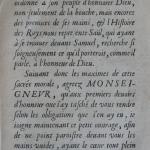 ordonné à son peuple d'honorer Dieu,
non seulement de la bouche, mais encore
des premiers de ses mains; & l'Histoire
des Roys nous represente Saül, qui ayant
à se trouver devant Samuel, recherche si
soigneusement ce qu'il portera, comme il
parle, à l'homme de Dieu.
Suivant donc les maximes de cette
sacrée morale, agreez MONSEI-
GNEVR, qu'aux premiers devoirs
d'honneur que j'ay tasché de vous rendre
selon les obligations que j'en ay eu, je
joigne maintenant ce petit ouvrage, afin
de ne point paroistre devant vous les
mains vuides, ayant le cœur tout plein